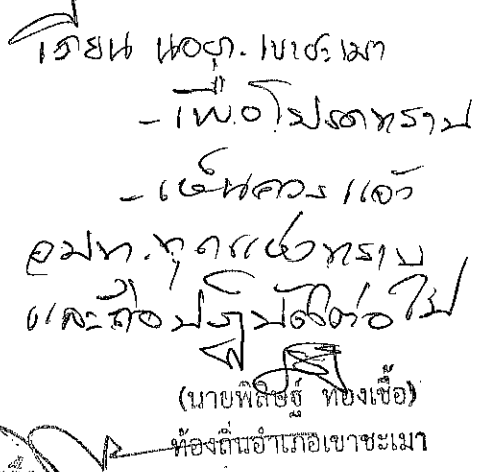 เรียน นอภ. เขาชะเมา
- เพื่อโปรดทราบ
- เห็นควรแจ้ง
อปท. ทุกแห่งทราบ
และถือปฏิบัติต่อไป
(นายพิสิษฐ์ ทองเชื้อ)
ท้องถิ่นอำเภอเขาชะเมา